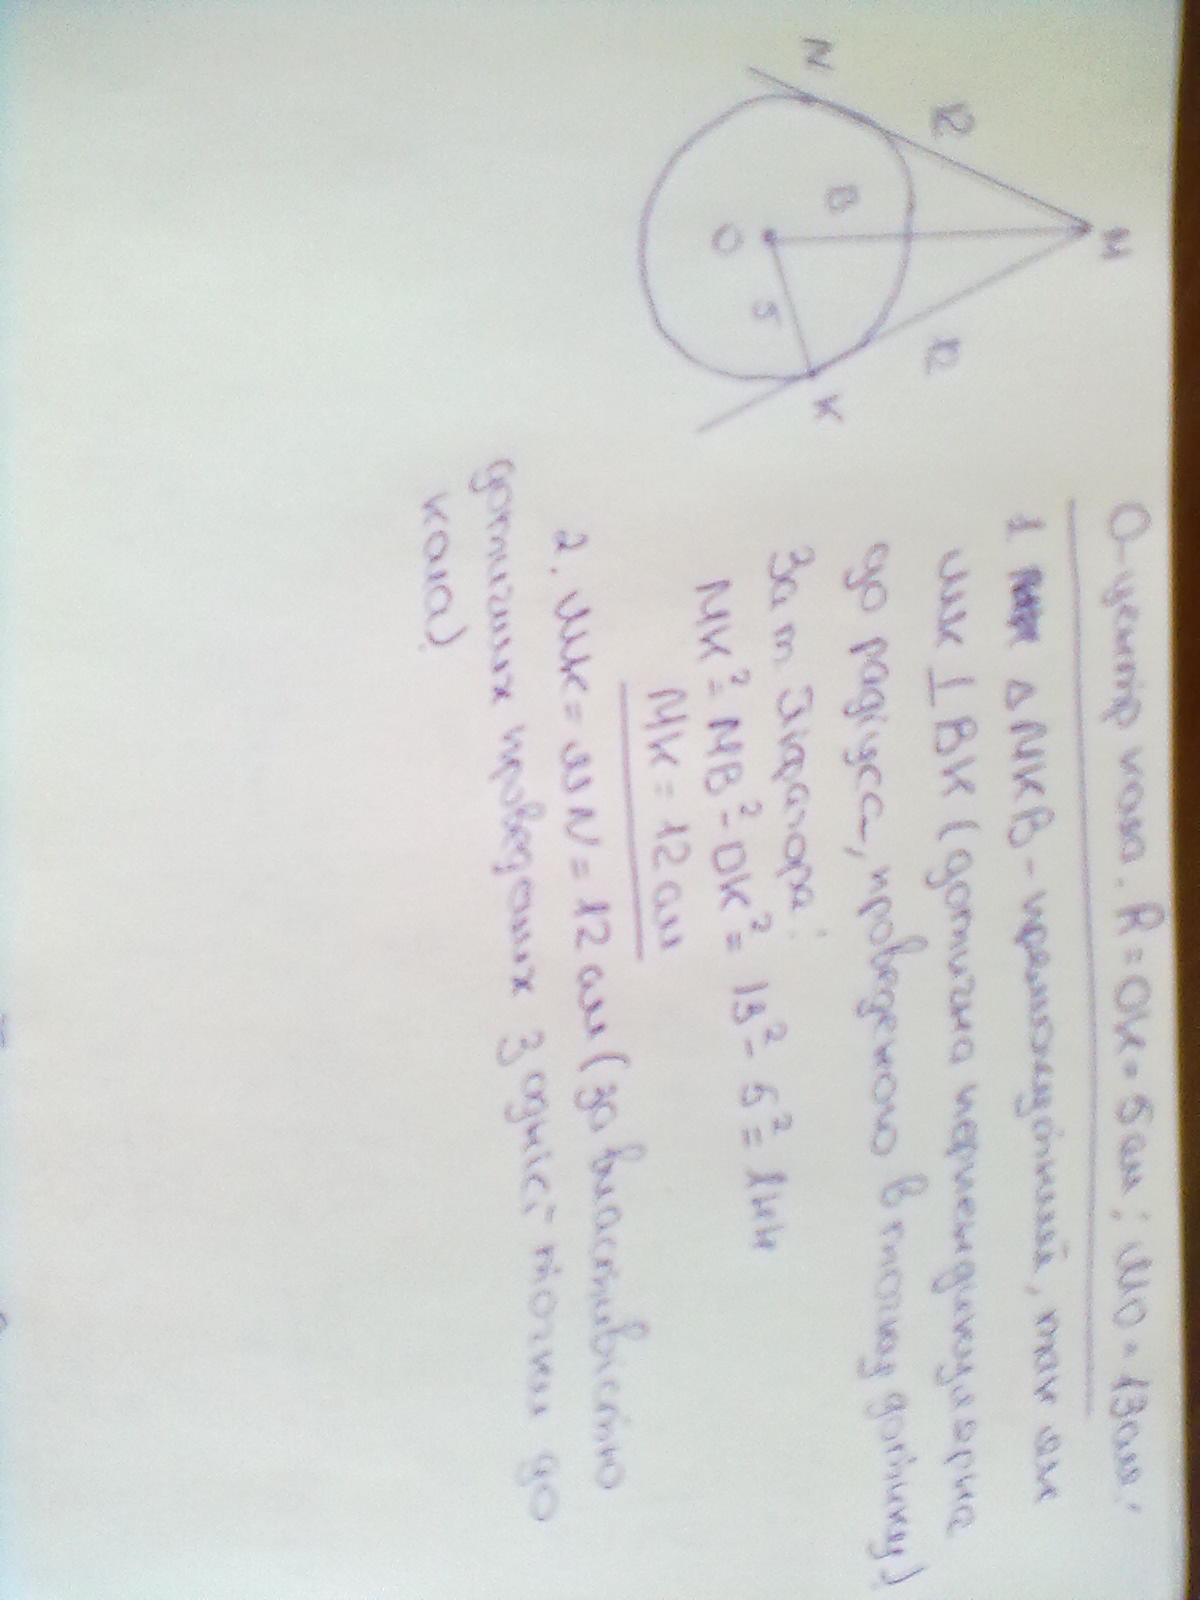 M
12
12
N
B
5
O
K
O - центр кола. R = OK = 5 см; MO = 13 см;
1 Δ MKB - прямокутний, так як
MK ⊥ BK (дотична перпендикулярна
до радіуса, проведеного в точку дотику)
За т Піфагора:
MK² = MB² - OK² = 13² - 5² = 144
MK = 12 см
2. MK = MN = 12 см (за властивістю
дотичних проведених з однієї точки до
кола)